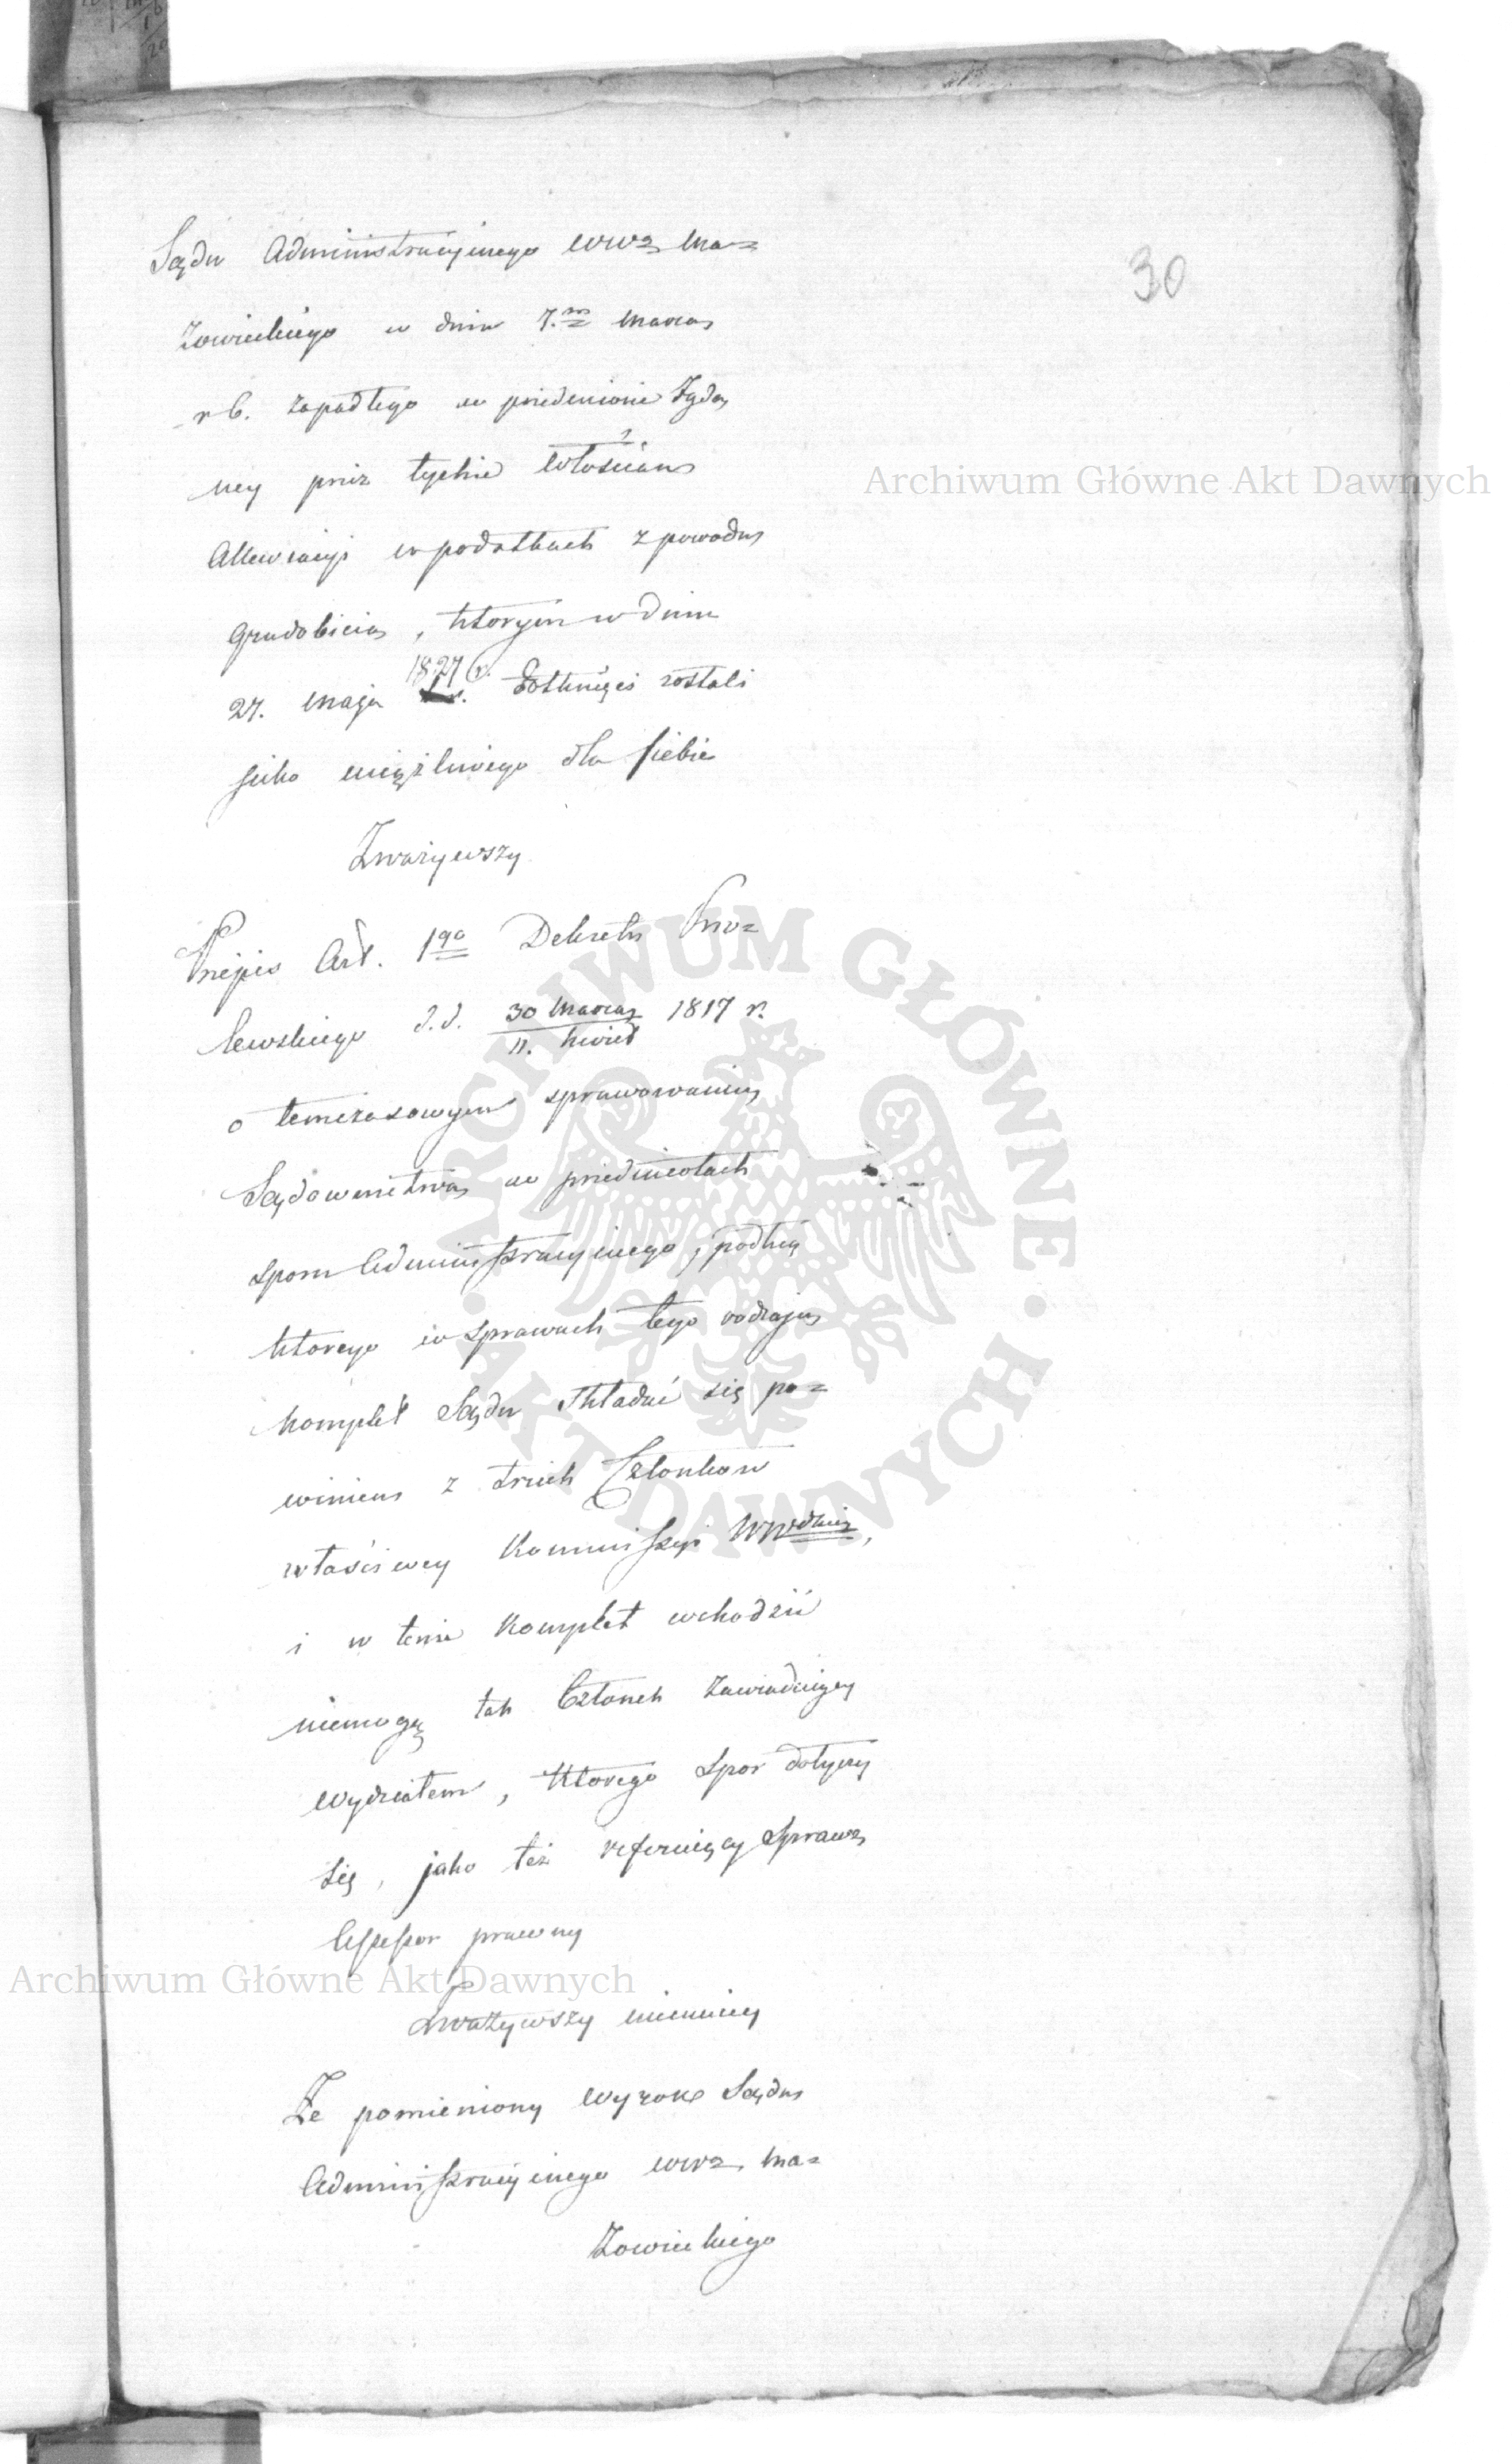 30
Sądu Administracyinego Wwa Ma=
zowieckiego w dniu 7.m Marca
r b. zapadłego w przedmiocie żąda
ney przez tychże Włościan
Allewiacyi w podatkach z powodu
Gradobicia, którym w dniu
1827 r.
27. Maja dotknięci zostali
jako uciążliwego dla siebie
Zważywszy
Przepis Art. 1go Dekretu Kró=
lewskiego d.d. 30 Marca 1817 r.
11. Kwiet
o temczasowym sprawowaniu
Sądownictwa w przedmiotach
Sporu Administracyinego, podług
którego w sprawach tego rodzaju
komplet Sądu składać się po=
winien z trzech Członków
właściwey Kommissyi Wwdzkiey,
i w tenże komplet wchodzić
niemogą tak Członek zawiaduiący
wydziałem, którego Spór dotyczy
się, jako też referuiący sprawę
Assessor prawny
Zważywszy niemniey
Że pomieniony wyrok Sądu
Administracyinego Wwa Ma=
zowieckiego
Archiwum Główne Akt Dawnych
Archiwum Główne Akt Dawnych
ARCHIWUM GŁÓWNE AKT DAWNYCH